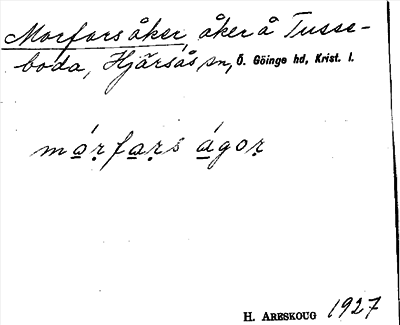 Morfarsåker, åker å Tusse-
boda, Hjärsås sn, Ö. Göinge hd, Krist. l.
mó̲r̤fa̲r̤s á̲gor̤
H. ARESKOUG 1927